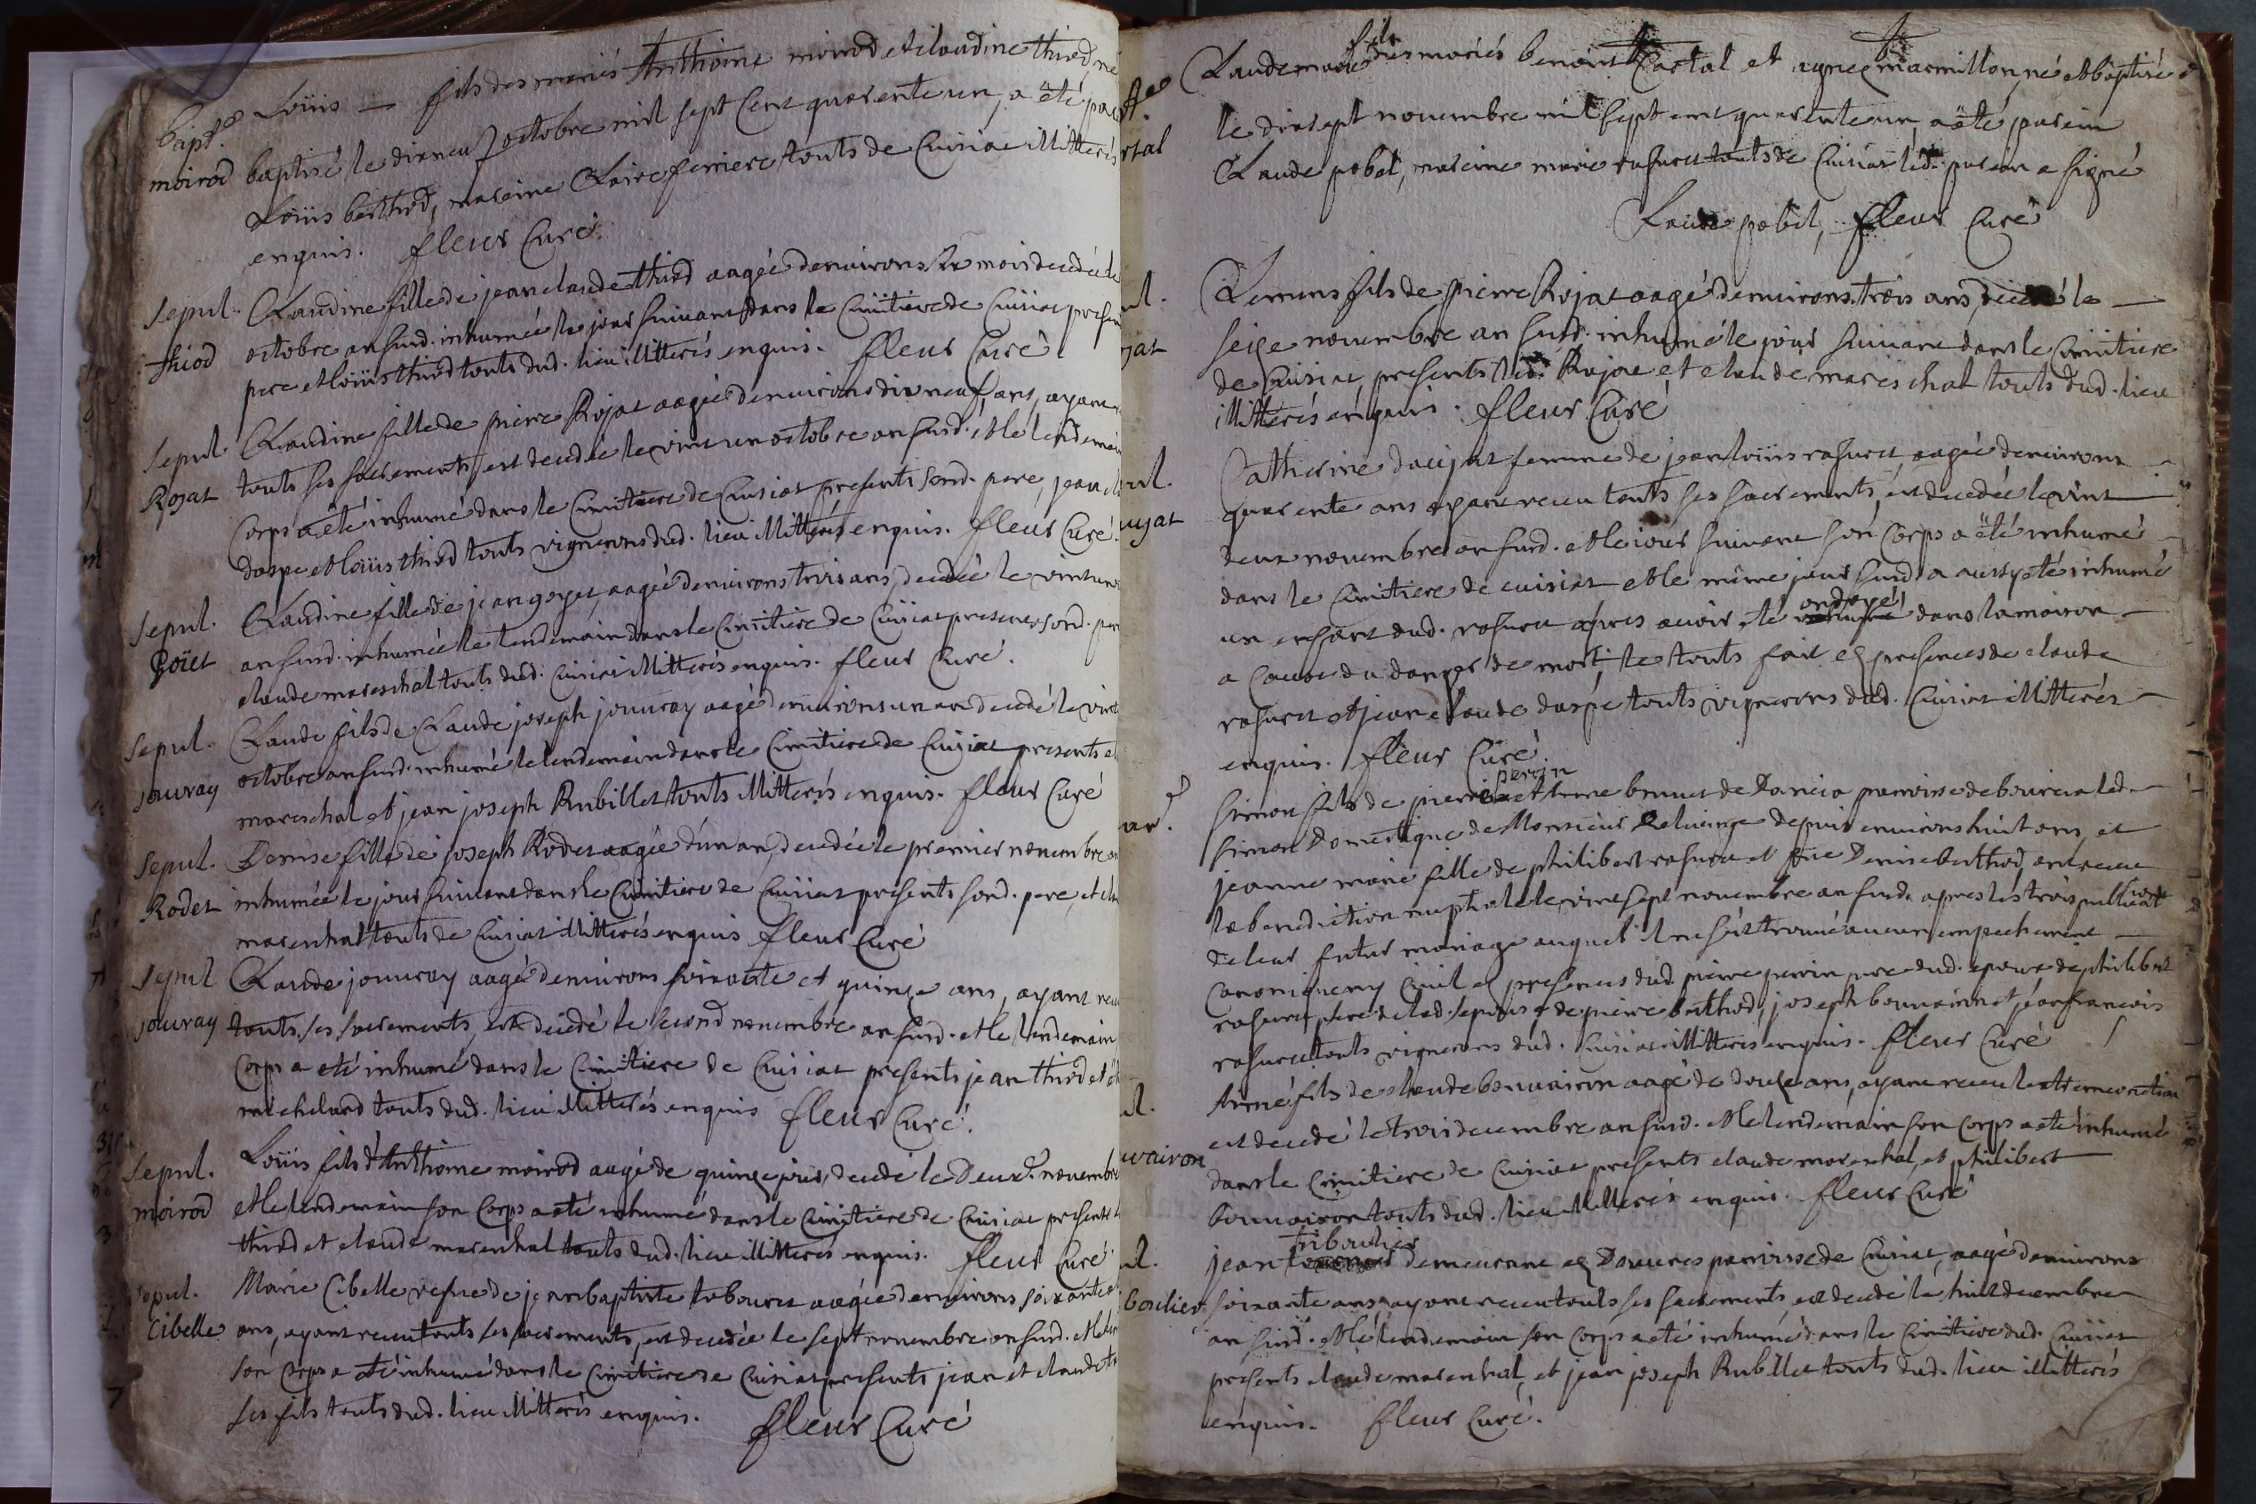 bapt.e Loüis — fils des mariés Anthoine moirod et claudine thiod né
moirod baptisé le dixneuf octobre mil sept cent quarente un, a été
Loüis berthod, mareine Claire ferriere touts de Cuisiat illitterés
enquis. fleur Curé
sepul. Claudine fille de jean claude thiod aagée denvirons six mois decedée le
thiod octobre an susd. inhumée le jour suivant dans le Cimitiere de Cuisiat
pere et loüis thiod touts dud. lieu illitterés enquis. fleur Curé
sepul. Claudine fille de pierre Rojat aagée denvirons dix neuf ans, ayant
Rojat touts ses sacrements est decedée le vint un octobre an susd. et le lendemain
Corps a été inhumé dans le Cimitiere de Cuisiat presents sond. pere, jean
daspe et loüis thiod touts vignerons dud. lieu illitterés enquis. fleur Curé.
sepul. Claudine fille de jean goyet, aagée denvirons trois ans, decedée le
Goïet an susd. inhumée le lendemain dans le Cimitiere de Cuisiat presents sond. pere
claude mareschal touts dud. Cuisiat illitterés enquis. fleur Curé.
sepul. Claude fils de Claude joseph jouvray aagé denvirons un an decedé le vint
jouvray octobre an susd. inhumé le lendemain dans le Cimitiere de Cuisiat presents
mareschal et jean joseph Rubillet touts illitterés enquis. fleur Curé
sepul. Denise fille de joseph Rodet aagée d'un an, decedée le premier novembre
Rodet inhumée le jour suivant dans le Cimitiere de Cuisiat presents sond. pere, et
mareschal touts de Cuisiat illitterés enquis fleur Curé
sepul Claude jouvray aagé denvirons soixante et quinze ans, ayant
jouvray touts ses sacrements, est decedé le second novembre an susd. et le lendemain
Corps a été inhumé dans le Cimitiere de Cuisiat presents jean thiod et
michelard touts dud. lieu illitterés enquis fleur Curé.
sepul. Loüis fils d'Anthoine moirod aagé de quinze jours, decedé le Deux.e novembre
moirod et le lendemain son Corps a été inhumé dans le Cimitiere de Cuisiat presents
thiod et claude mareschal touts dud. lieu illitterés enquis. fleur Curé
sepul. Marie Cibelle vefve de jean baptiste tabouret aagée denvirons soixante
Cibelle ans, ayant receu touts ses sacrements, est decedée le sept novembre an susd.
son Corps a été inhumé dans le Cimitiere de Cuisiat presents jean et claude
ses fils touts dud. lieu illitterés enquis. fleur Curé
Claude marie fils des mariés benoit Cartal et agnes marmillon, né et baptisé
le dixsept novembre mil sept cent quarente un, a été parein
Claude pobel, mareine marie rasurel touts de Cuisiat led. parein a signé
Claude pobel, fleur Curé
Clemens fils de pierre Rojat aagé denvirons trois ans, decedé le —
seize novembre an susd. inhumé le jour suivant dans le Cimitiere
de Cuisiat, presents led. Rojat et claude mareschal touts dud. lieu
illitterés enquis. fleur Curé
Catherine daujat femme de jean loüis rasurel, aagée denvirons —
quarente ans ayant receu touts ses sacrements, est decedée le vint —
deux novembre an susd. et le jour suivant son Corps a été inhumé
dans le Cimitiere de cuisiat et le même jour susd. a aussy été inhumé
un enfant dud. rasurel apres avoir été ondoyé dans la maison —
a Cause du danger de mort, le touts fait es presences de claude
rasurel et jean claude daspe touts vignerons dud. Cuisiat illitterés —
enquis. fleur Curé.
Simon fils de pierre perrin et brunet de Dancia parroisse de bourcia led. —
simon Domestique de Monsieur Deluange depuis environs huit ans, et
jeanne marie fille de philibert rasurel et Denise berthod, ont receu
la benediction nuptiale le vint sept novembre an susd. apres les trois publications
de leur futur mariage auquel il ne s'est trouvé aucun empechement —
Canonique ny Civil es presences dud. pierre perrin pere dud. epoux de philibert
rasurel pere de lad. epouse de pierre berthod, joseph bouvairon et jean francois
rasurel touts vignerons dud. Cuisiat illitterés enquis. fleur Curé
Aimé fils de claude bouvairon aagé de douze ans, ayant receu l'extremeonction
est decedé le trois decembre an susd. et le lendemain son Corps a été inhumé
dans le Cimitiere de Cuisiat presents claude mareschal, et philibert
bouvairon touts dud. lieu illitterés enquis. fleur Curé
jean triboulier demeurant es Douvres parroisse de Cuisiat, aagé denvirons
soixante ans, ayant receu touts ses sacrements, est decedé le huit decembre
an susd. et le lendemain son Corps a été inhumé dans le Cimitiere dud. Cuisiat
presents claude mareschal, et jean joseph Rubillet touts dud. lieu illitterés
enquis. fleur Curé.